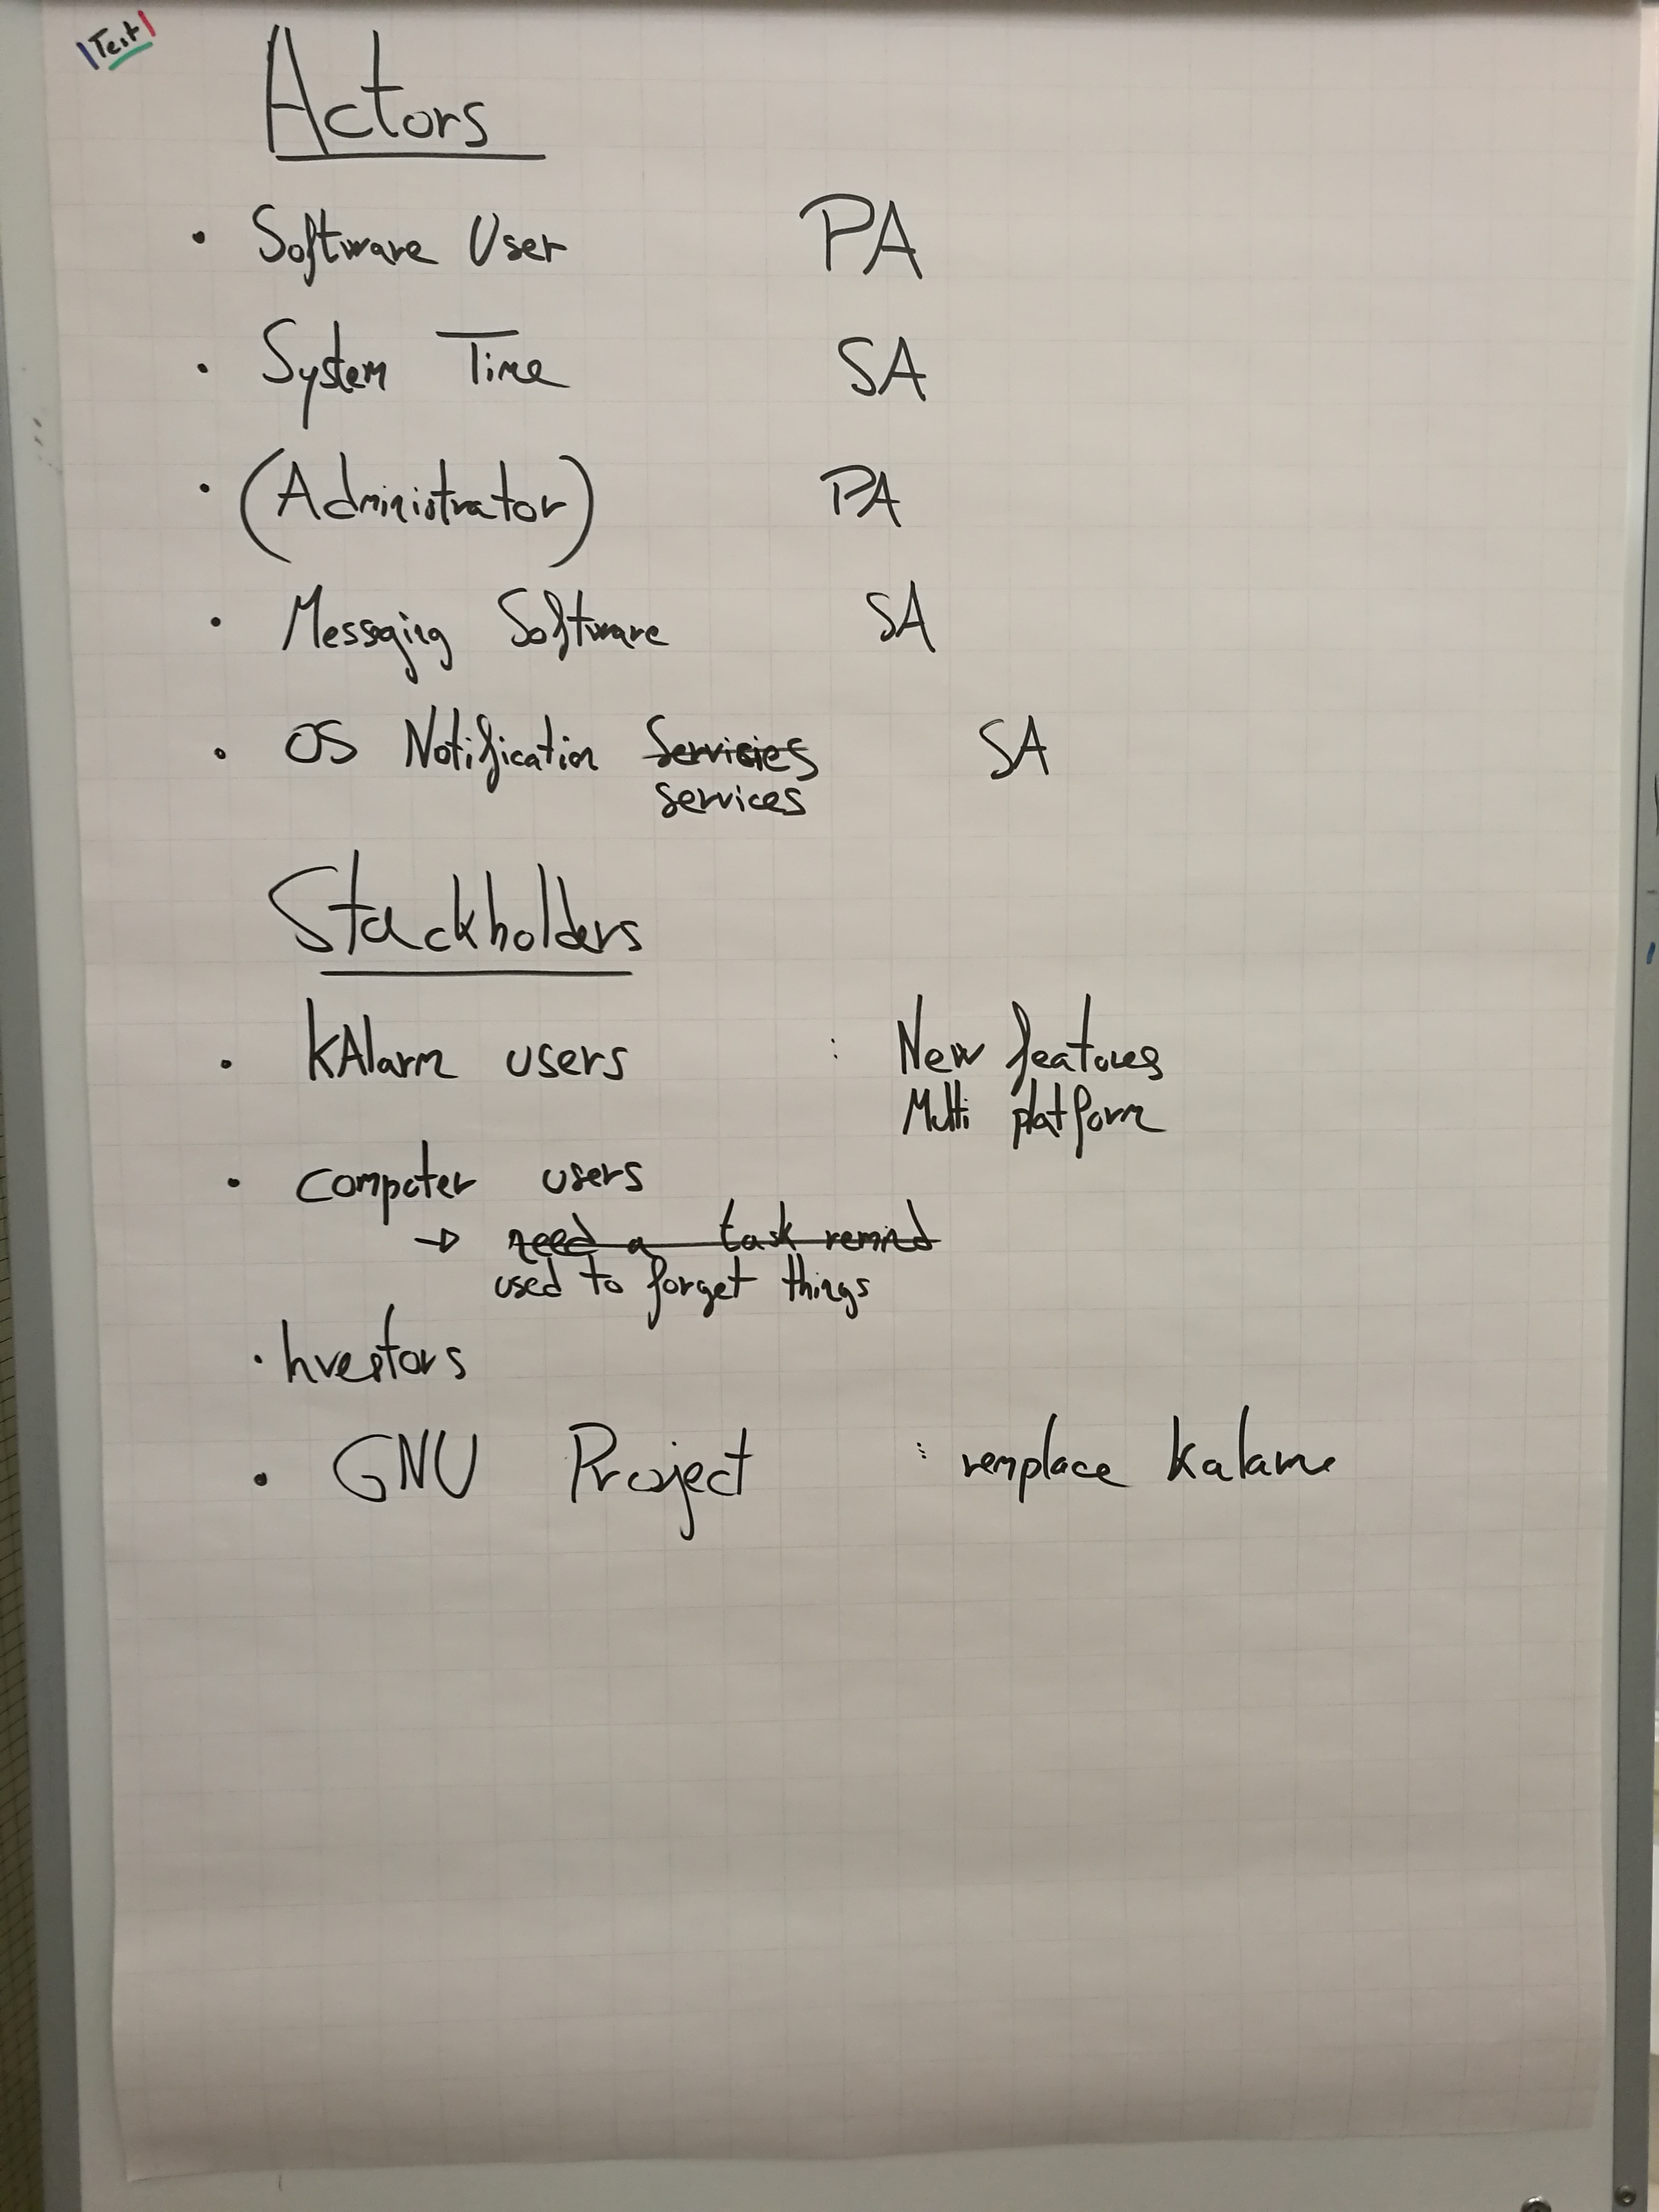 Test
Actors
• Software User PA
• System Time SA
• (Administrator) PA
• Messaging Software SA
• OS Notification Servicies SA
services
Stackholders
• KAlarm users : New features
Multi platform
• Computer users
→ need a task remind
used to forget things
• Investors
• GNU Project : remplace Kalarm